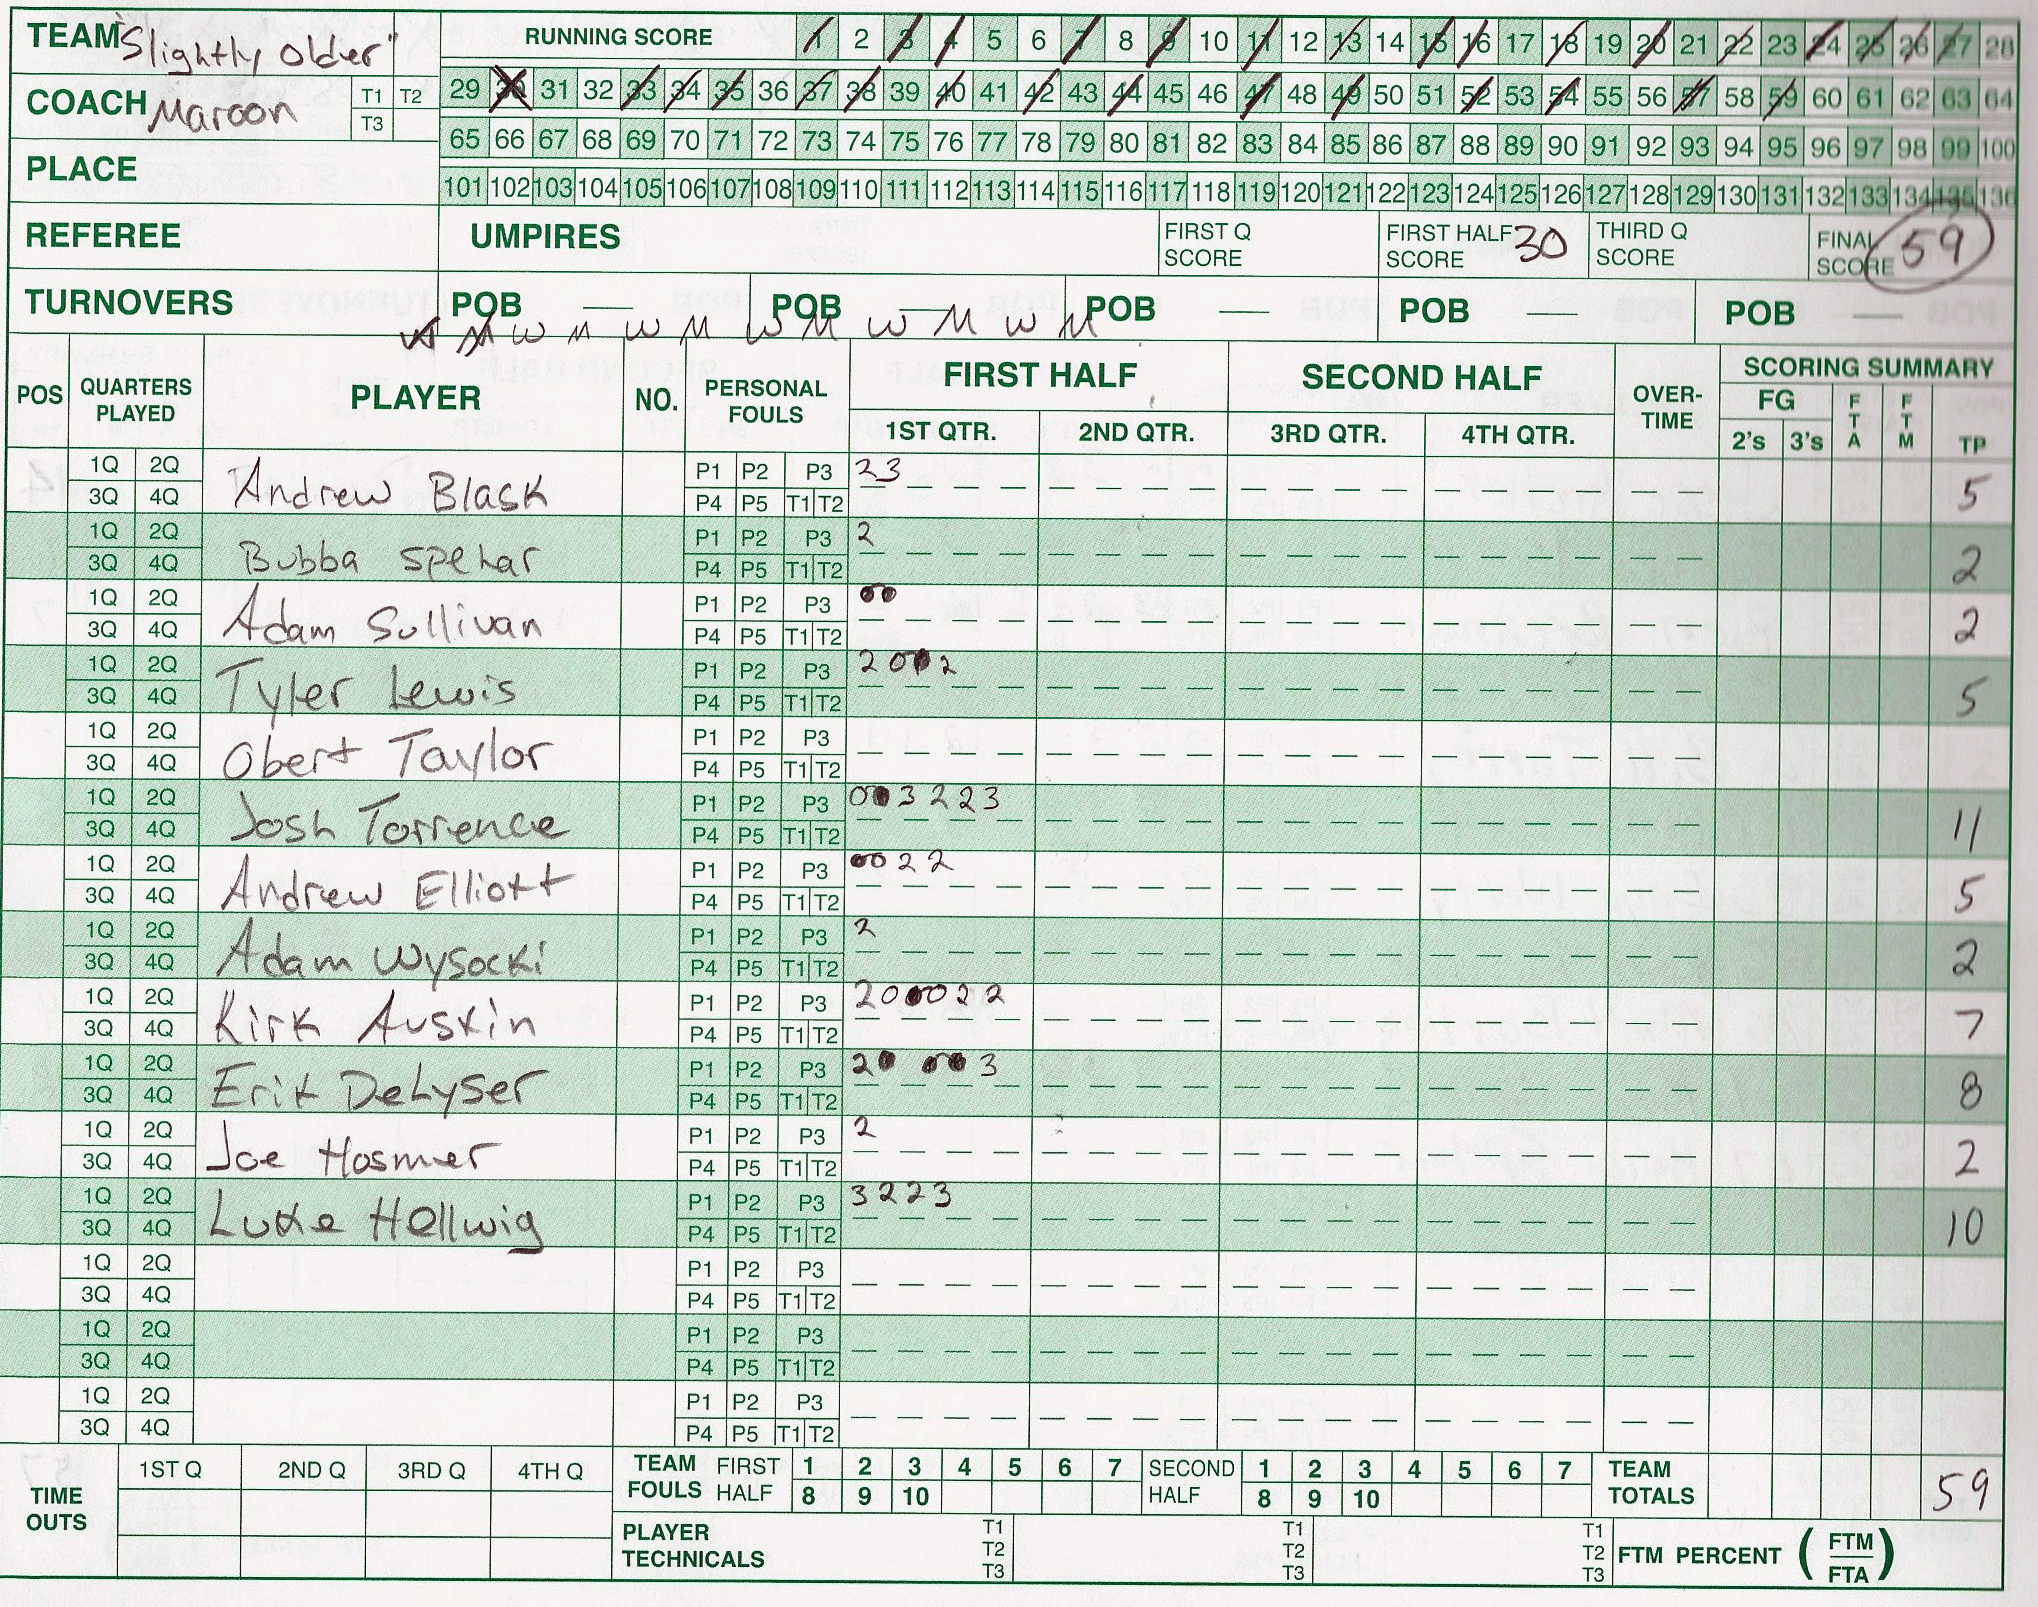 TEAM "Slightly Older" RUNNING SCORE 1 2 3 4 5 6 7 8 9 10 11 12 13 14 15 16 17 18 19 20 21 22 23 24 25 26 27 28
COACH Maroon T1 T2 T3 29 30 31 32 33 34 35 36 37 38 39 40 41 42 43 44 45 46 47 48 49 50 51 52 53 54 55 56 57 58 59 60 61 62 63 64
65 66 67 68 69 70 71 72 73 74 75 76 77 78 79 80 81 82 83 84 85 86 87 88 89 90 91 92 93 94 95 96 97 98 99 100
PLACE 101 102 103 104 105 106 107 108 109 110 111 112 113 114 115 116 117 118 119 120 121 122 123 124 125 126 127 128 129 130 131 132 133 134 135 136
REFEREE UMPIRES FIRST Q SCORE FIRST HALF SCORE 30 THIRD Q SCORE FINAL SCORE 59
TURNOVERS POB — POB — POB — POB — POB —
W M W M W M W M W M
POS QUARTERS PLAYED PLAYER NO. PERSONAL FOULS FIRST HALF SECOND HALF OVER-TIME SCORING SUMMARY
1ST QTR. 2ND QTR. 3RD QTR. 4TH QTR. FG 2's 3's FTA FTM TP
1Q 2Q 3Q 4Q Andrew Blask P1 P2 P3 P4 P5 T1 T2 2 3 5
1Q 2Q 3Q 4Q Bubba Spehar P1 P2 P3 P4 P5 T1 T2 2 2
1Q 2Q 3Q 4Q Adam Sullivan P1 P2 P3 P4 P5 T1 T2 0 0 2
1Q 2Q 3Q 4Q Tyler Lewis P1 P2 P3 P4 P5 T1 T2 2 0 0 2 5
1Q 2Q 3Q 4Q Obert Taylor P1 P2 P3 P4 P5 T1 T2
1Q 2Q 3Q 4Q Josh Torrence P1 P2 P3 P4 P5 T1 T2 0 0 3 2 2 3 11
1Q 2Q 3Q 4Q Andrew Elliott P1 P2 P3 P4 P5 T1 T2 0 0 2 2 5
1Q 2Q 3Q 4Q Adam Wysocki P1 P2 P3 P4 P5 T1 T2 2 2
1Q 2Q 3Q 4Q Kirk Auskin P1 P2 P3 P4 P5 T1 T2 2 0 0 0 0 2 2 7
1Q 2Q 3Q 4Q Erik DeLyser P1 P2 P3 P4 P5 T1 T2 2 0 0 0 3 8
1Q 2Q 3Q 4Q Joe Hosmer P1 P2 P3 P4 P5 T1 T2 2 2
1Q 2Q 3Q 4Q Luke Hellwig P1 P2 P3 P4 P5 T1 T2 3 2 2 3 10
1Q 2Q 3Q 4Q P1 P2 P3 P4 P5 T1 T2
1Q 2Q 3Q 4Q P1 P2 P3 P4 P5 T1 T2
1Q 2Q 3Q 4Q P1 P2 P3 P4 P5 T1 T2
TIME OUTS 1ST Q 2ND Q 3RD Q 4TH Q TEAM FOULS FIRST HALF 1 2 3 4 5 6 7 8 9 10 SECOND HALF 1 2 3 4 5 6 7 8 9 10 TEAM TOTALS 59
PLAYER TECHNICALS T1 T2 T3 T1 T2 T3 T1 T2 T3 FTM PERCENT (FTM/FTA)